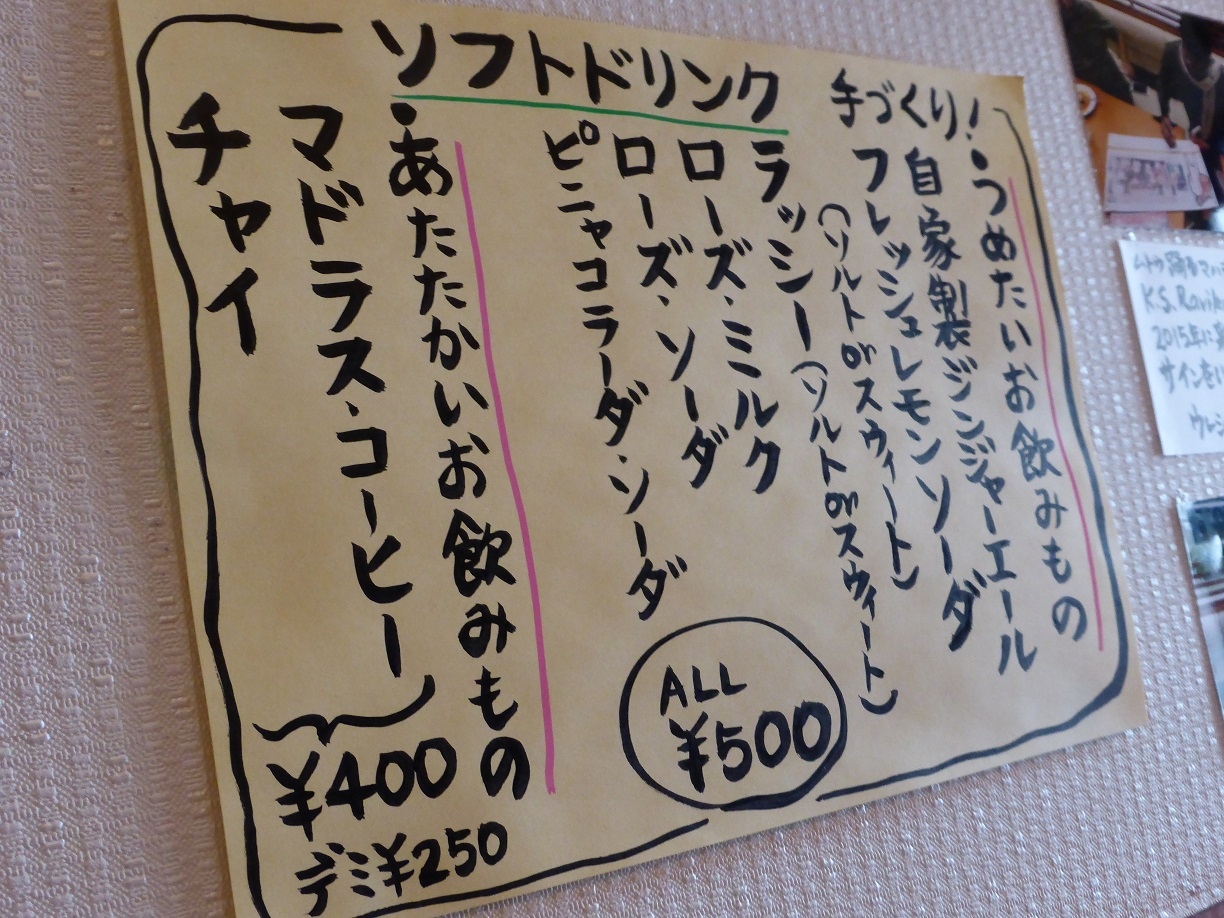 ソフトドリンク
手づくり!
・つめたいお飲みもの
自家製ジンジャーエール
フレッシュレモンソーダ
(ソルトorスウィート)
ラッシー(ソルトorスウィート)
ローズ・ミルク
ローズ・ソーダ
ピニャコラーダ・ソーダ
ALL
¥500
・あたたかいお飲みもの
マドラス・コーヒー
チャイ
¥400
デミ¥250
K.S.
2015年に
サインを